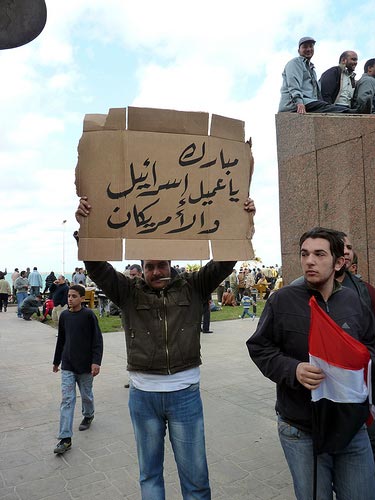 مبارك
يا عميل إسرائيل
والأمريكان